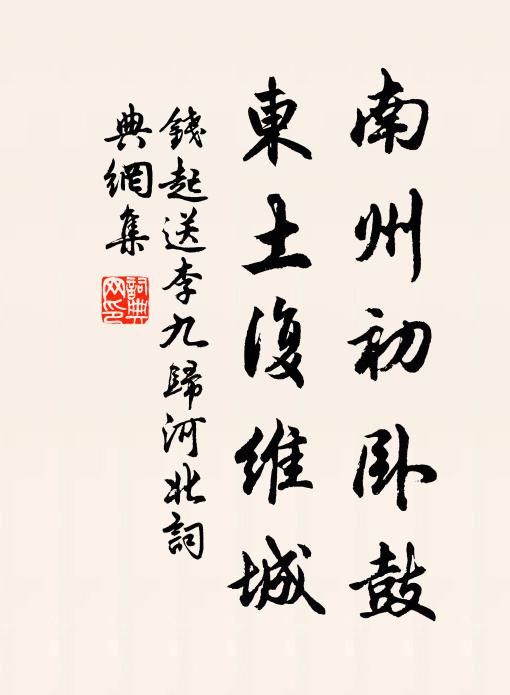 南州初卧鼓
東土復維城
錢起送李九歸河北詞
典網集
詞典網印